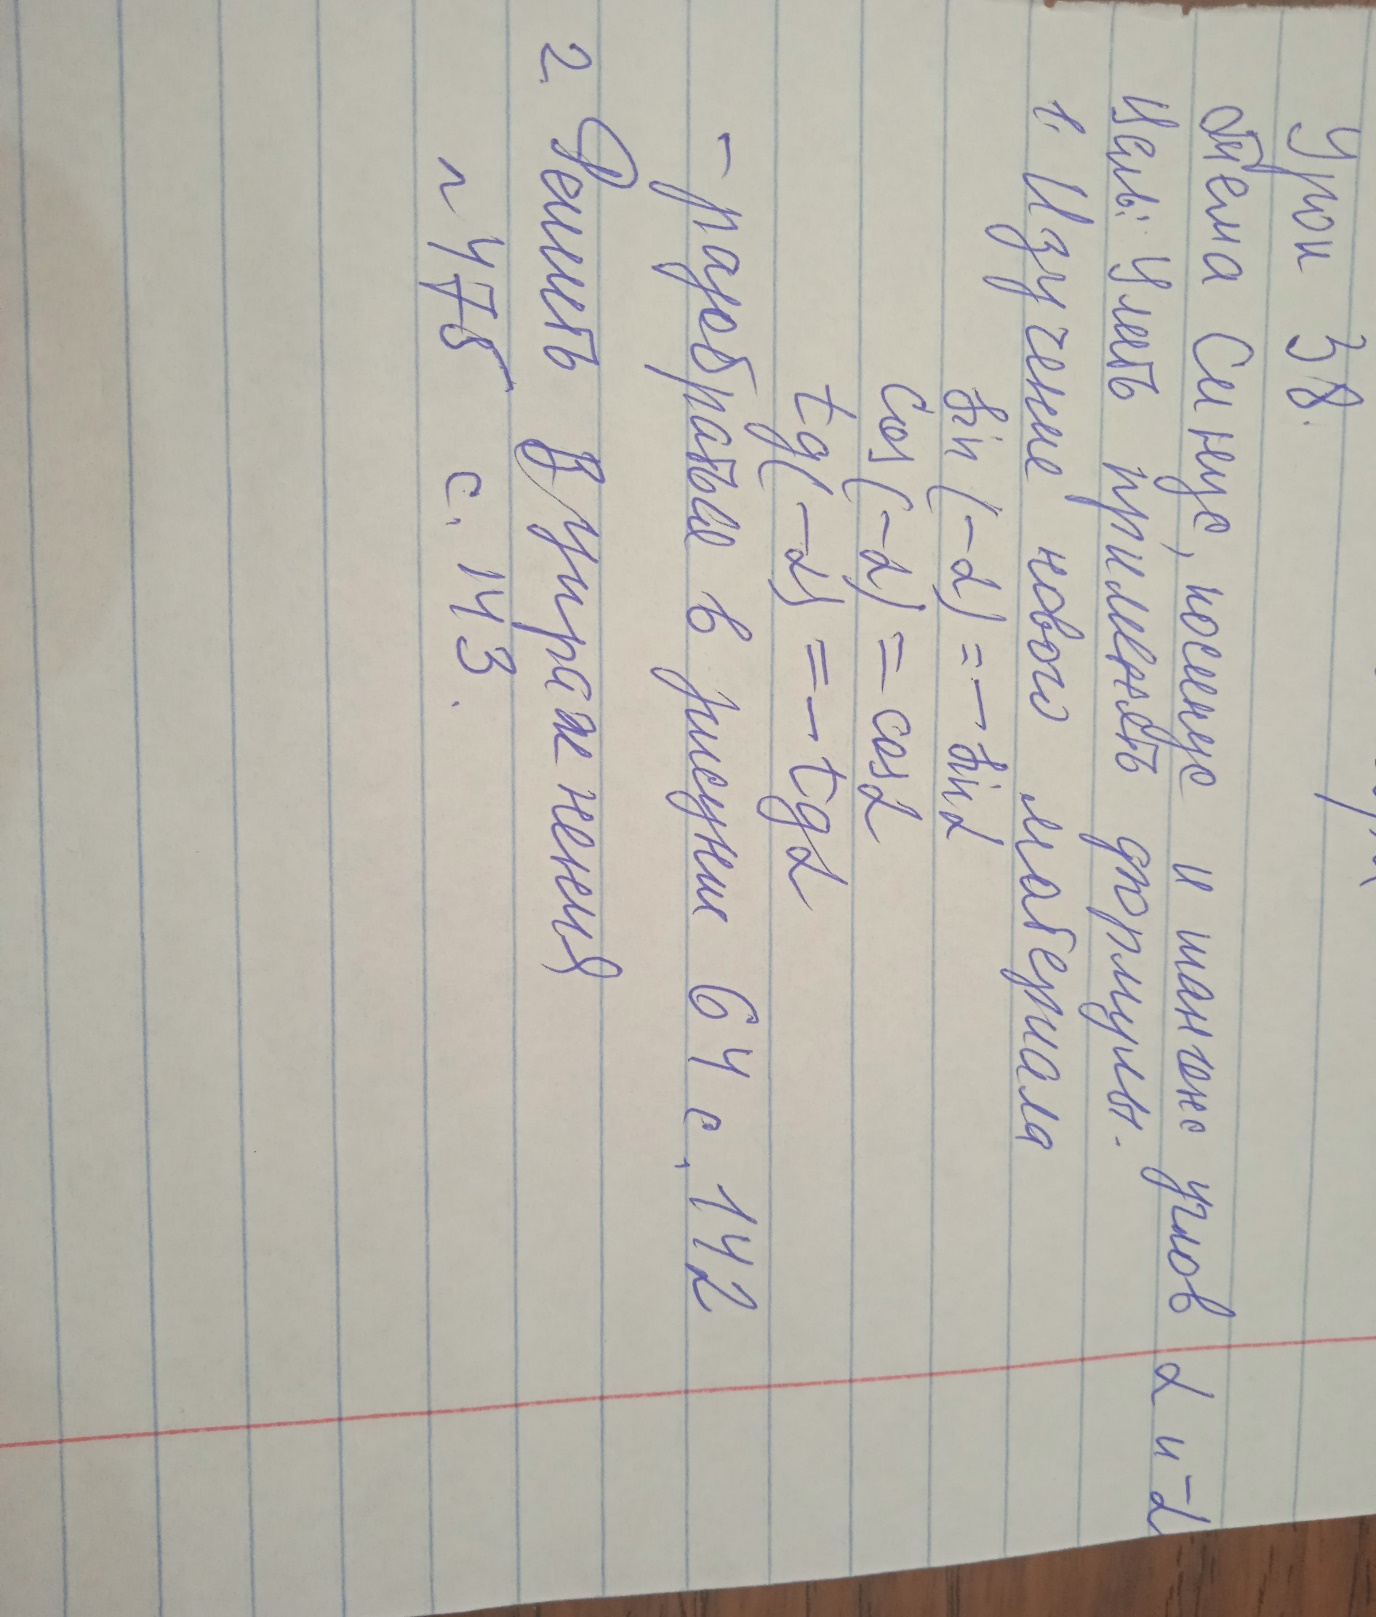 Урок 38.
Тема Синус, косинус и тангенс углов α и -α
Цель: Уметь применять формулы.
1. Изучение нового материала
sin (-α) = - sin α
cos (-α) = cos α
tg (-α) = - tg α
- разобраться в рисунке 64 с. 142
2. Решить упражнения
№ 475 с. 143.